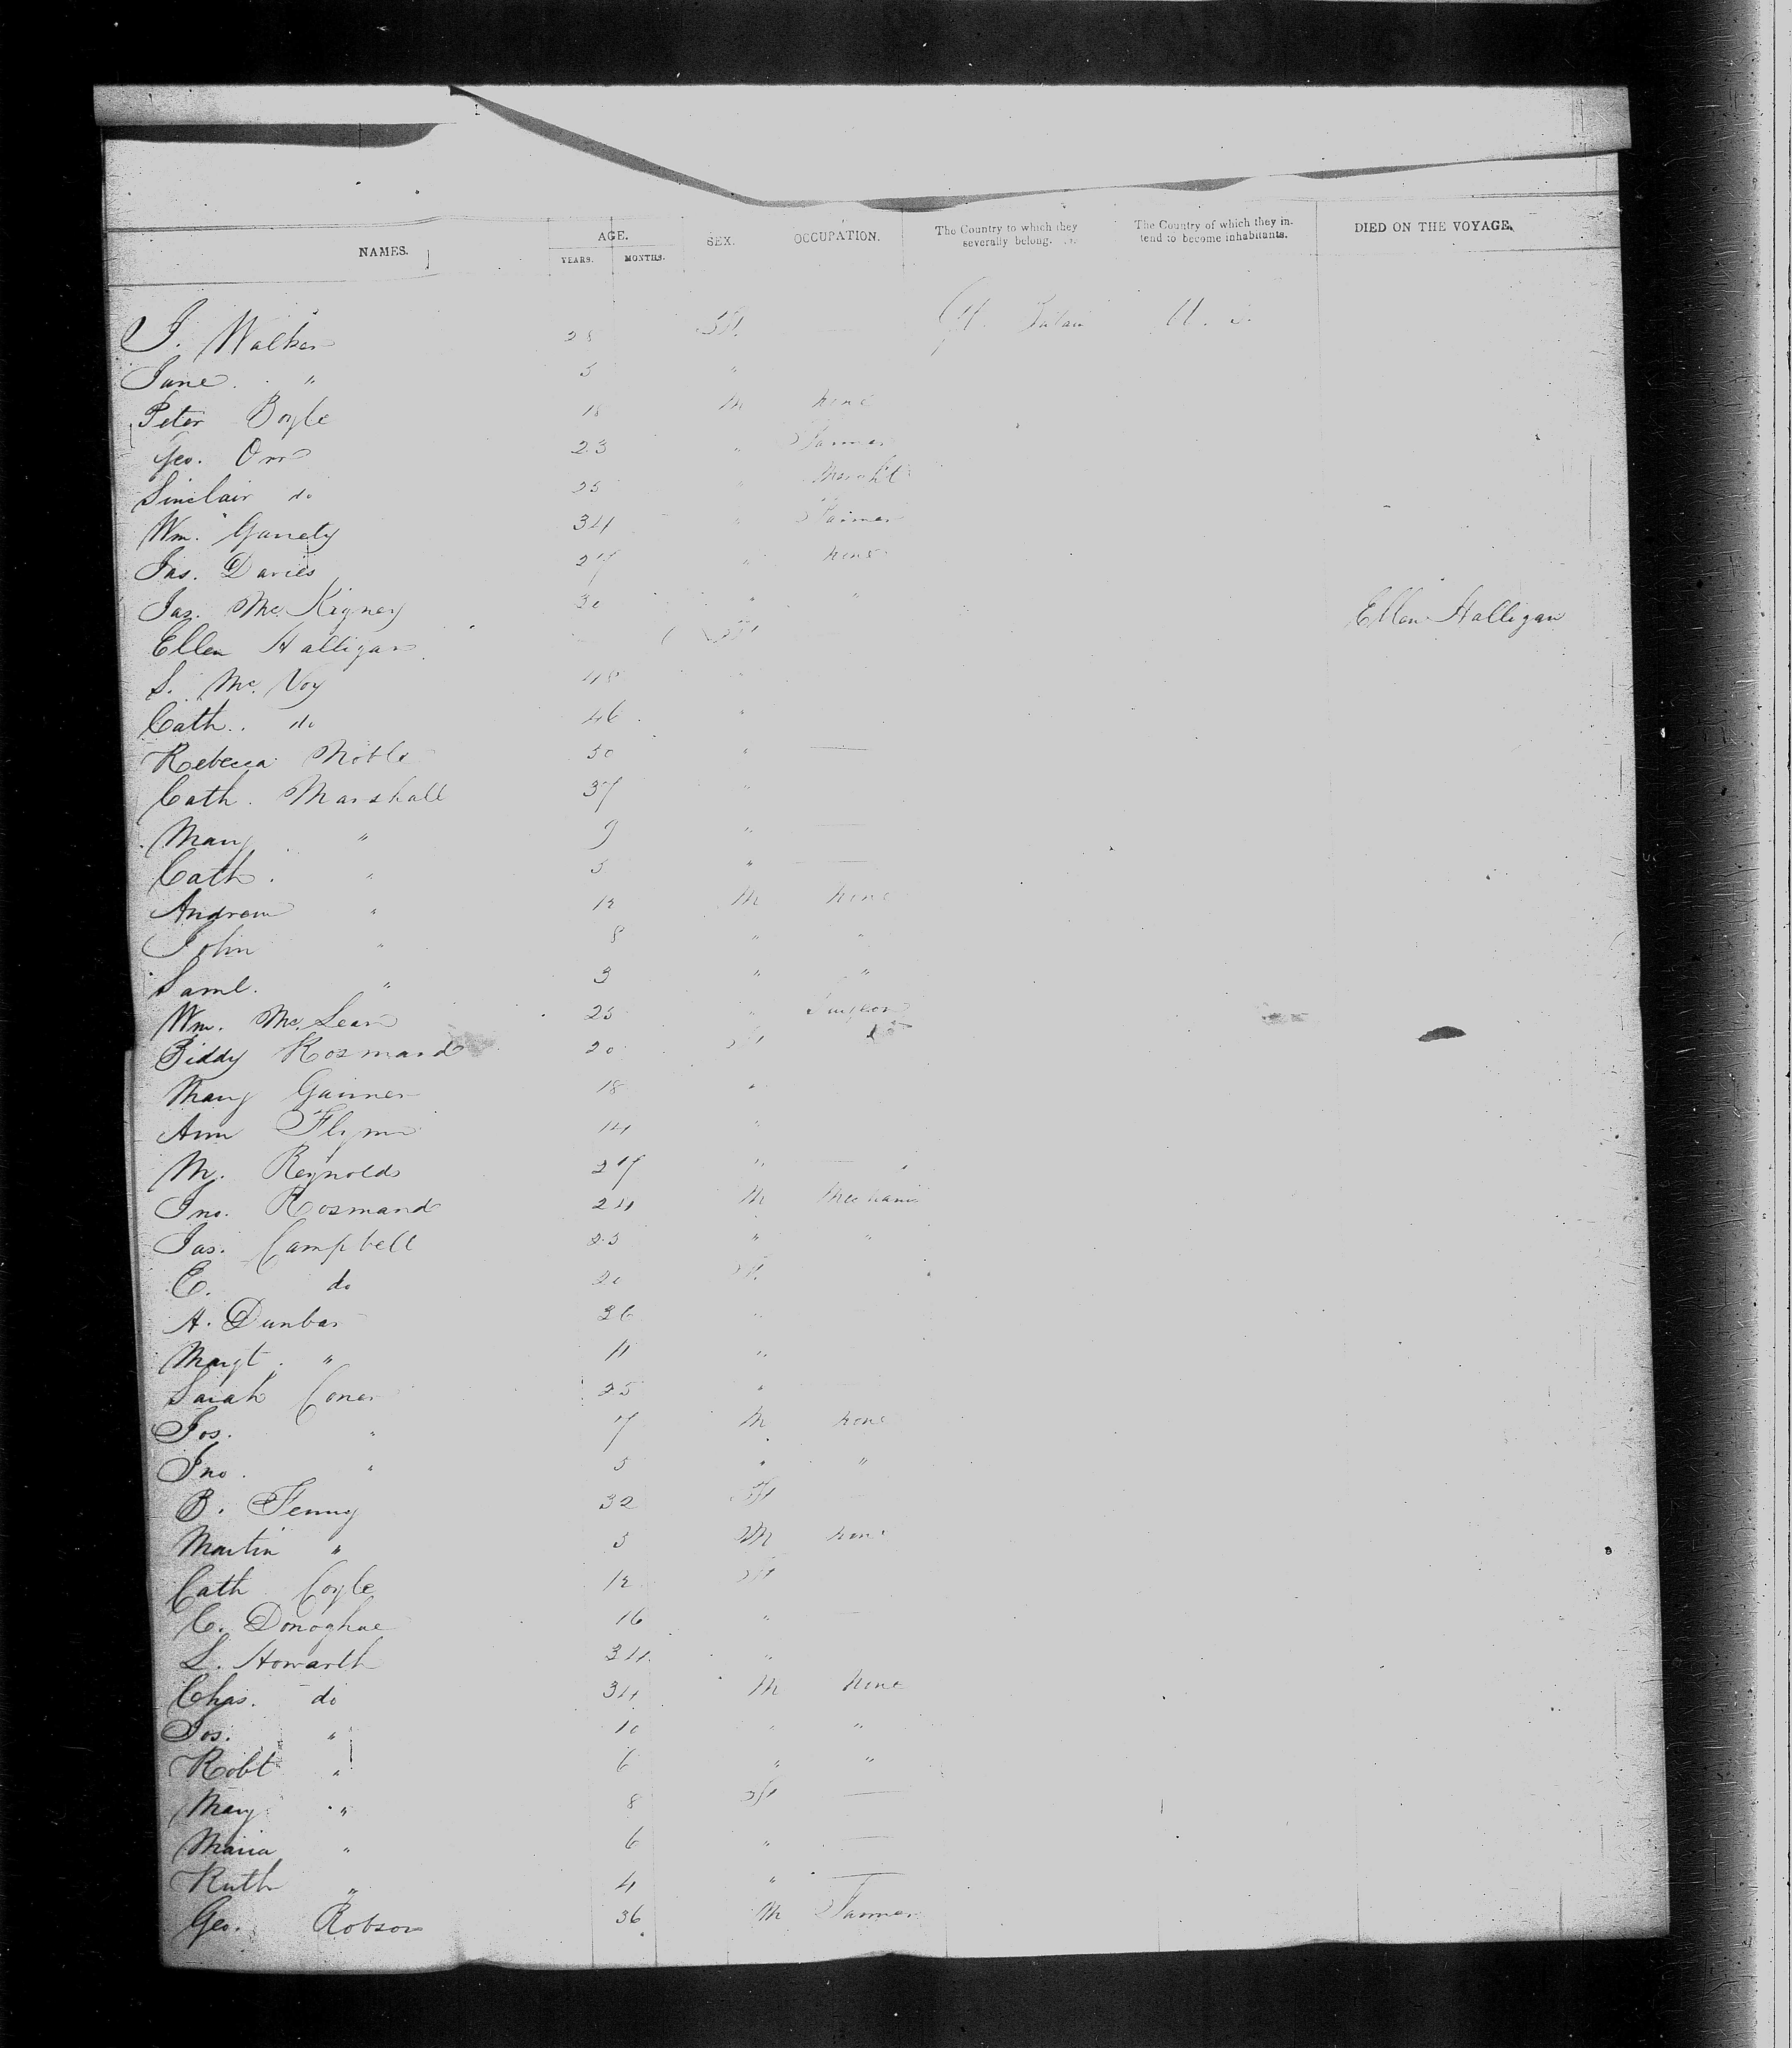 NAMES. AGE. YEARS. MONTHS. SEX. OCCUPATION. The Country to which they severally belong. The Country of which they intend to become inhabitants. DIED ON THE VOYAGE.
J. Walker 28 F. — Gt. Britain U. S.
Jane " 5 "
Peter Boyle 18 M none
Geo. Orr 23 " Farmer
Sinclair do 25 " Merch't
Wm. Garrety 34 " Farmer
Jas. Davies 27 " none
Jas. McKigney 30 " "
Ellen Halligan F Ellen Halligan
S. McVoy 48 "
Cath. do 46 "
Rebecca Noble 30 " —
Cath. Marshall 37 "
Mary " 9 " —
Cath. " 5 " —
Andrew " 12 M none
John " 8 " "
Saml. " 3 " "
Wm. McLean 25 " Surgeon
Biddy Rosmand 20 F
Mary Gainer 18 "
Ann Flynn 14 "
M. Reynolds 27 " —
Jno. Rosmand 24 M Mechanic
Jas. Campbell 23 " "
C. do 20 F.
A. Dunbar 36 "
Margt. " 11 "
Sarah Coner 25 "
Jos. " 7 M none
Jno. " 5 " "
B. Fenny 32 F
Martin " 3 M none
Cath Coyle 12 F
C. Donoghue 16 "
L. Howarth 34 "
Chas. do 34 M none
Jos. " 10 " "
Robt " 6 " "
Mary " 8 F —
Maria " 6 " —
Ruth " 4 " —
Geo. Robson 36 M Farmer